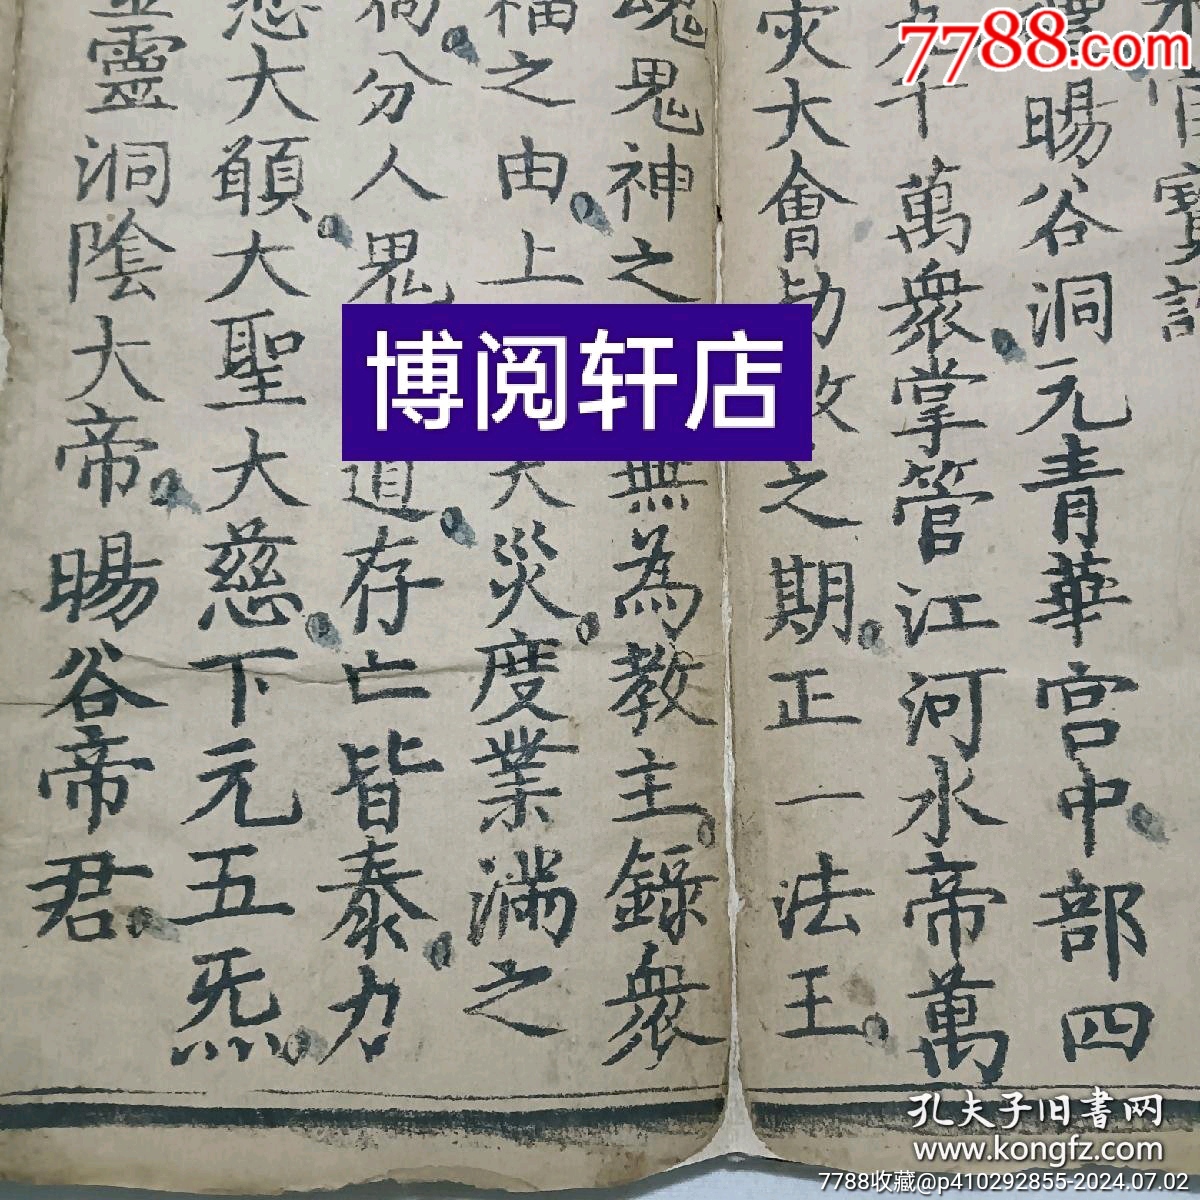 官寶誥
暘谷洞元青華宮中部四
九千萬衆掌管江河水帝萬
灾大會劫數之期正一法王
魂鬼神之無為教主錄衆
福之由上天災度業滿之
分人鬼道存亡皆泰力
大願大聖大慈下元五炁
靈洞陰大帝暘谷帝君
7788.com
博阅轩店
孔夫子旧書网
www.kongfz.com
7788收藏@p410292855-2024.07.02